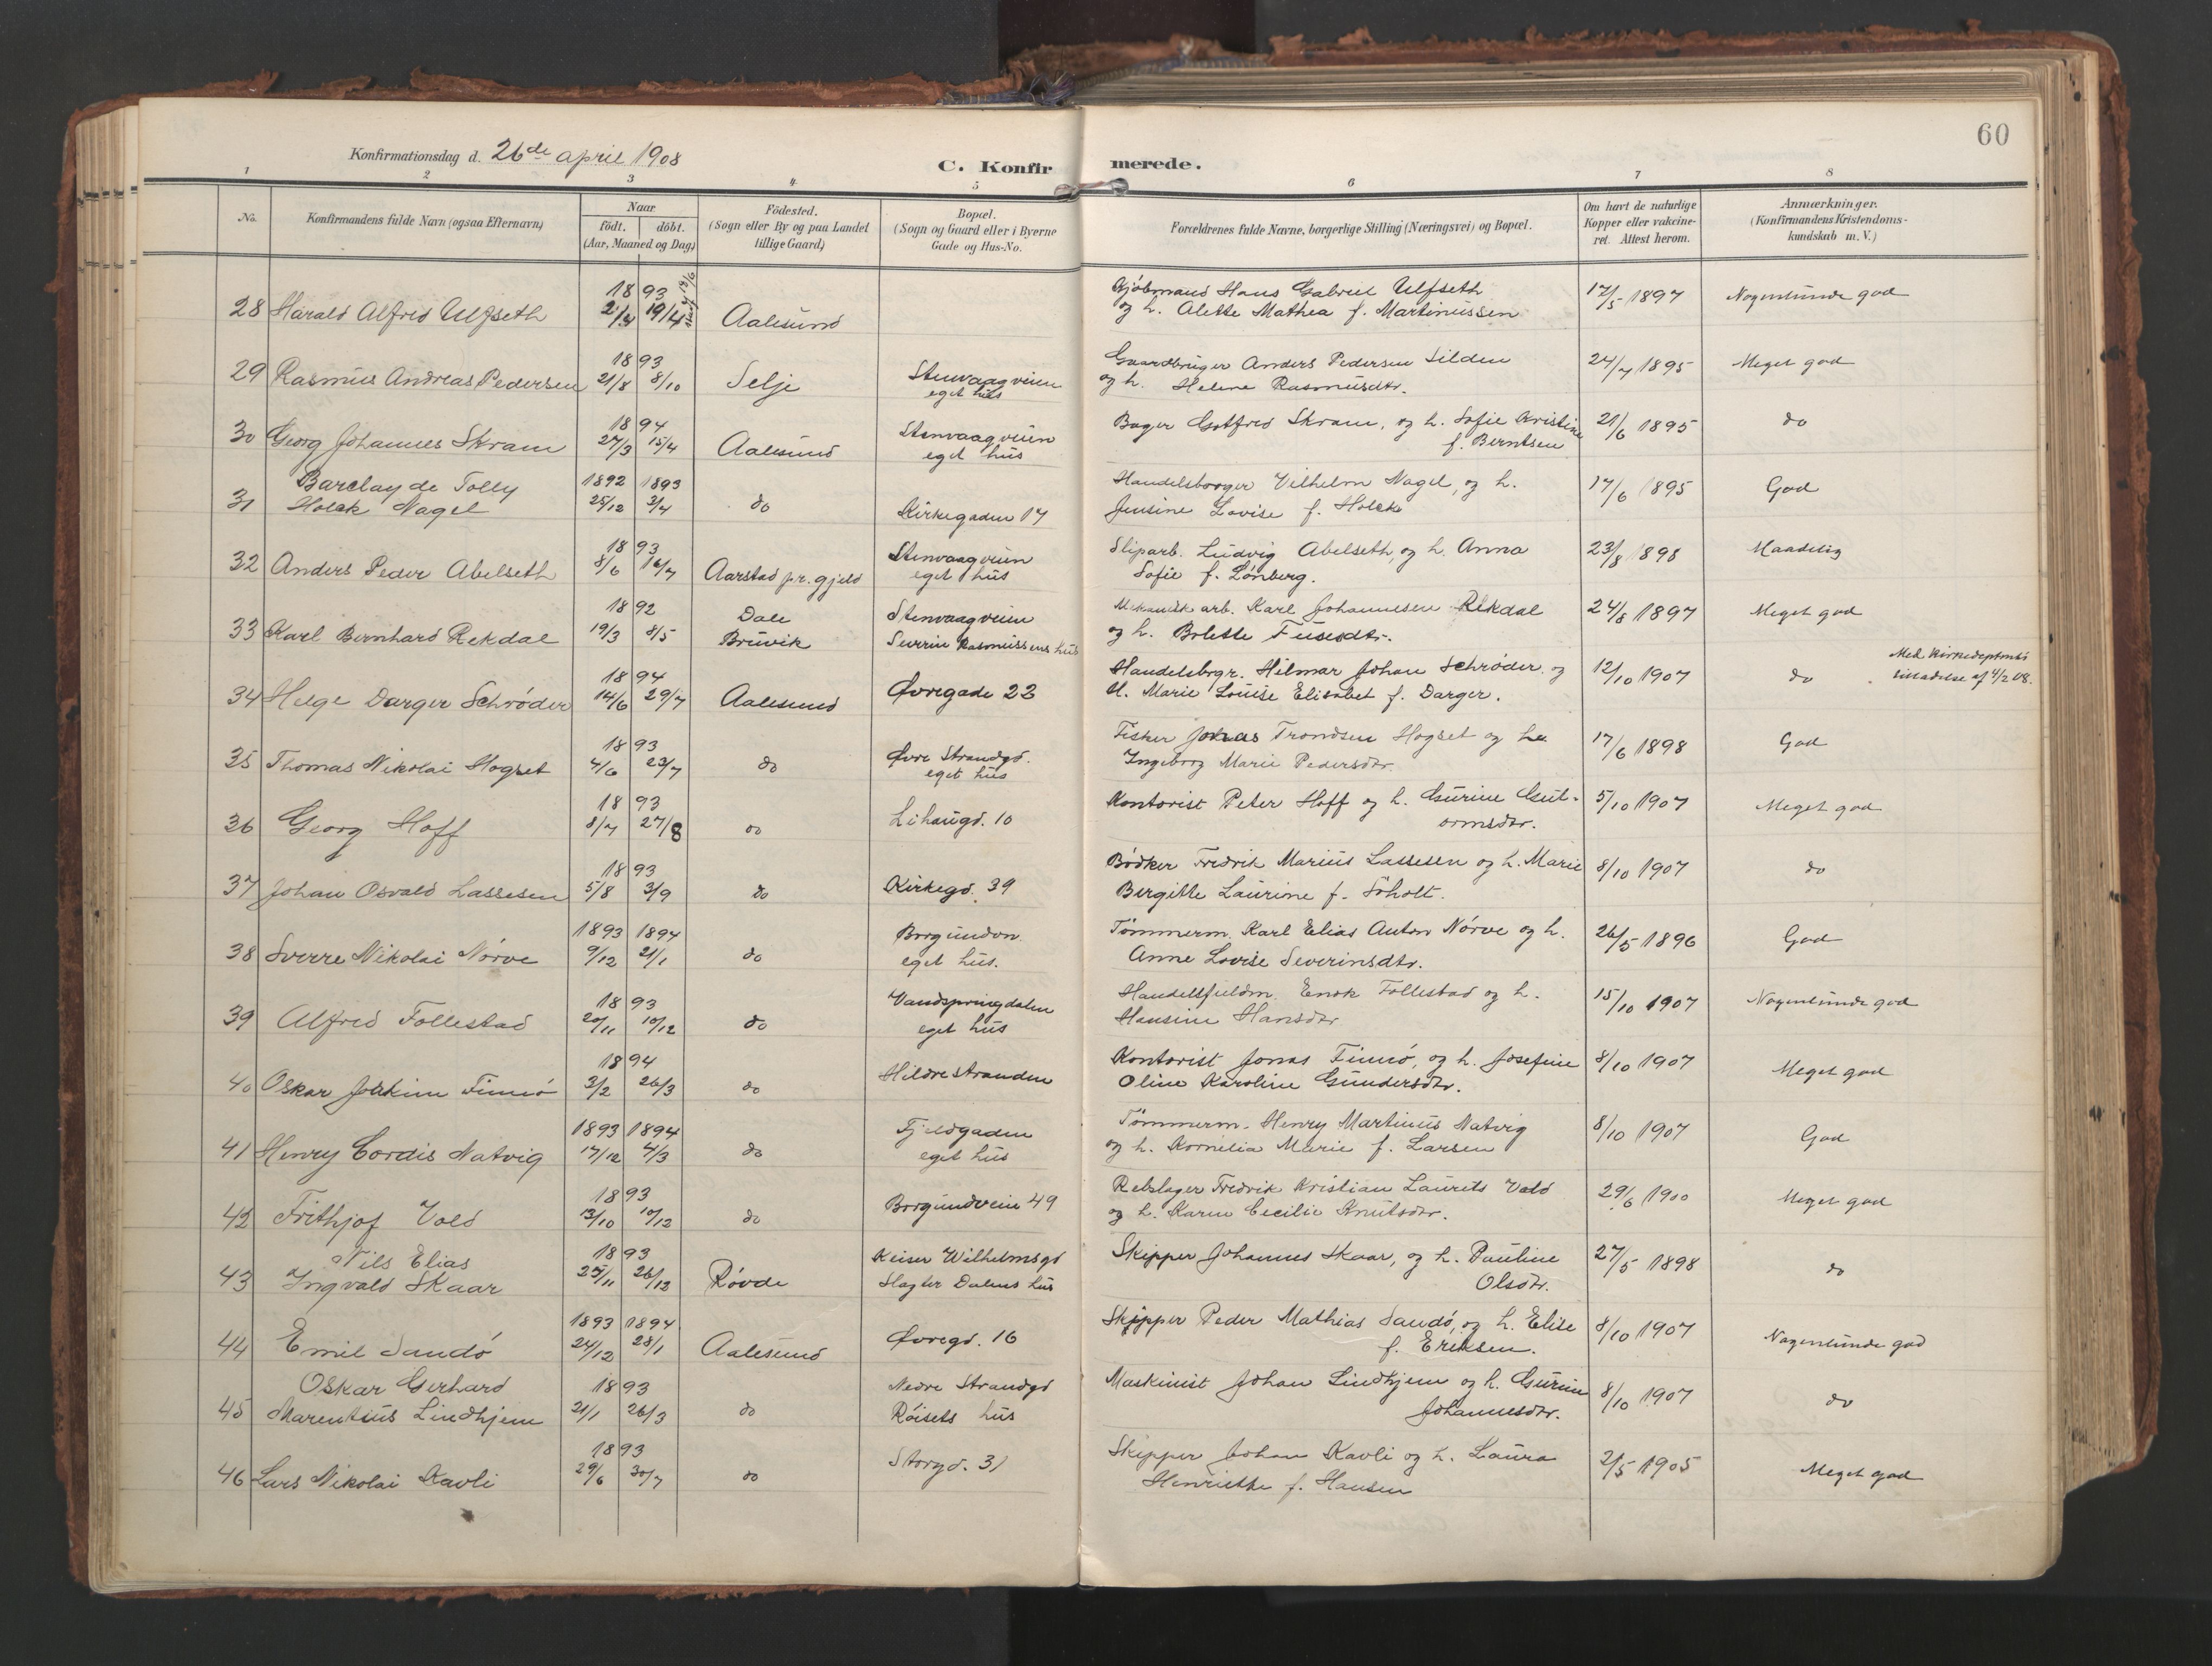 60
Konfirmationsdag d. 26de april 1908
C. Konfirmerede.
1 2 3 4 5 6 7 8
No.
Konfirmandens fulde Navn (ogsaa Efternavn)
Naar
födt. döbt.
(Aar, Maaned og Dag)
Födested.
(Sogn eller By og paa Landet
tillige Gaard)
Bopæl.
(Sogn og Gaard eller i Byerne
Gade og Hus-No.
Forældrenes fulde Navne, borgerlige Stilling (Næringsvei) og Bopæl.
Om havt de naturlige
Kopper eller vakcine-
ret. Attest herom.
Anmærkninger.
(Konfirmandens Kristendoms-
kundskab m. V.)
1893 Gjøbmand Hans Gabriel Ulfseth
28 Harald Alfred Ulfseth 2/4 19/4 Aalesund og h. Alette Mathea f. Martinussen 12/5 1897 Nogenlunde god
1893 Gaardbruger Anders Pedersen Silden
29 Rasmus Andreas Pedersen 21/8 8/10 Selje Stenvaagveien eget hus og h. Helene Rasmusdtr. 24/7 1895 Meget god
1894 Bager Gotfred Skram, og h. Sofie Kristine
30 Georg Johannes Skram 27/3 15/4 Aalesund Stenvaagveien eget hus f. Berntsen 21/6 1895 do
Barclay de Tolly 1892 1893 Handelsborger Vilhelm Nagel, og h.
31 Holck Nagel 25/12 3/4 do Kirkegaden 17 Jensine Lovise f. Holck 17/6 1895 God
1893 Sliparb. Ludvig Abelseth, og h. Anna
32 Anders Peder Abelseth 8/6 16/7 Aarstad pr.gjeld Stenvaagveien eget hus Sofie f. Lønberg. 23/8 1898 Maadelig
1892 Dale Stenvaagveien Mekanisk arb. Karl Johannesen Rekdal
33 Karl Bernhard Rekdal 19/3 8/5 Bruvik Severin Rasmussens hus og h. Bolette 24/8 1897 Meget god
1894 Handelsbrgr. Hilmar Johan Schrøder og Med Kirkedeptmts
34 Helge Darger Schrøder 14/6 29/7 Aalesund Øvregade 22 h. Marie Louise Elisabet f. Darger. 12/10 1907 do tilladelse af 4/2 08.
1893 Fisker Jonas Trondsen Hogset og h.
35 Thomas Nikolai Hogset 4/6 23/7 do Øvre Strandgd. eget hus Ingeborg Marie Pedersdtr. 17/6 1898 God
1893 Kontorist Peter Hoff og h. Gurine Gut-
36 Georg Hoff 8/7 27/8 do Lihaugd. 10 ormsdtr. 5/10 1907 Meget god
1893 Bødker Fredrik Marius Lassesen og h. Marie
37 Johan Osvald Lassesen 5/8 3/9 do Kirkegd. 39 Bergitte Laurine f. Søholt. 8/10 1907 do
1893 1894 Tømmerm. Karl Elias Anton Nørve og h.
38 Sverre Nikolai Nørve 9/12 21/1 do Borgundvn. eget hus. Anne Lovise Severinsdtr. 26/5 1896 God
1893 Enok Follestad og h.
39 Alfred Follestad 20/11 10/12 do Vandspringdalen eget hus Hansine Hansdtr 15/10 1907 Nogenlunde god
1894 Kontorist Jonas Finnø, og h. Josefine
40 Oskar Joakim Finnø 3/2 26/3 do Hildrestranden Oline Karoline Gundersdtr. 8/10 1907 Meget god
1893 1894 Tømmerm. Henry Martinus Natvig
41 Henry Cordis Natvig 17/12 4/3 do Fjeldgaden eget hus og h. Kornelia Marie f. Larsen 8/10 1907 God
1893 Rebslager Fredrik Kristian Laurits Vold
42 Frithjof Vold 13/10 10/12 do Borgundveien 49 og h. Karen Cecilie Knutsdtr. 29/6 1900 Meget god
Nils Elias 1893 Keiser Wilhelmsgd Skipper Johannes Skaar, og h. Pauline
43 Ingvald Skaar 25/11 26/12 Røvde Slagter Dalens hus Olsdtr. 27/5 1898 do
1893 1894 Skipper Peder Mathias Sandø, og h. Elise
44 Emil Sandø 24/12 28/1 Aalesund Øvregd. 16 f. Eriksen. 8/10 1907 Nogenlunde god
Oskar Gerhard 1893 Nedre Strandgd Maskinist Johan Lindhjem og h. Gurine
45 Marentius Lindhjem 21/1 26/3 do Røisets hus Johannesdtr. 8/10 1907 do
1893 Skipper Johan Kavli og h. Laura
46 Lars Nikolai Kavli 29/6 30/7 do Storgd. 31 Henriette f. Hansen 2/5 1905 Meget god